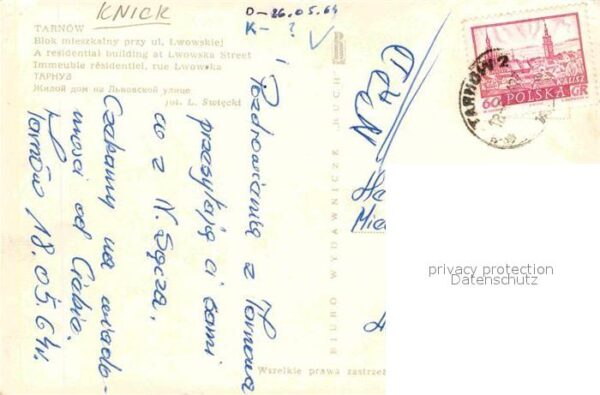 KNICK
D-26.05.64
K- ?
TARNÓW
Blok mieszkalny przy ul. Lwowskiej
A residential building at Lwowska Street
Immeuble résidentiel, rue Lwowska
ТАРНУВ
Жилой дом на Львовской улице
fot. L. Święcki
Pozdrowienia z Tarnowa
przesyłają ci sami
co z N. Sącza.
Czekamy na wiado-
mości od Ciebie.
Tarnów 18.05.64r.
BIURO WYDAWNICZE „RUCH”
Wszelkie prawa zastrzeż
TARNÓW 2
KALISZ
60 GR
POLSKA
privacy protection
Datenschutz